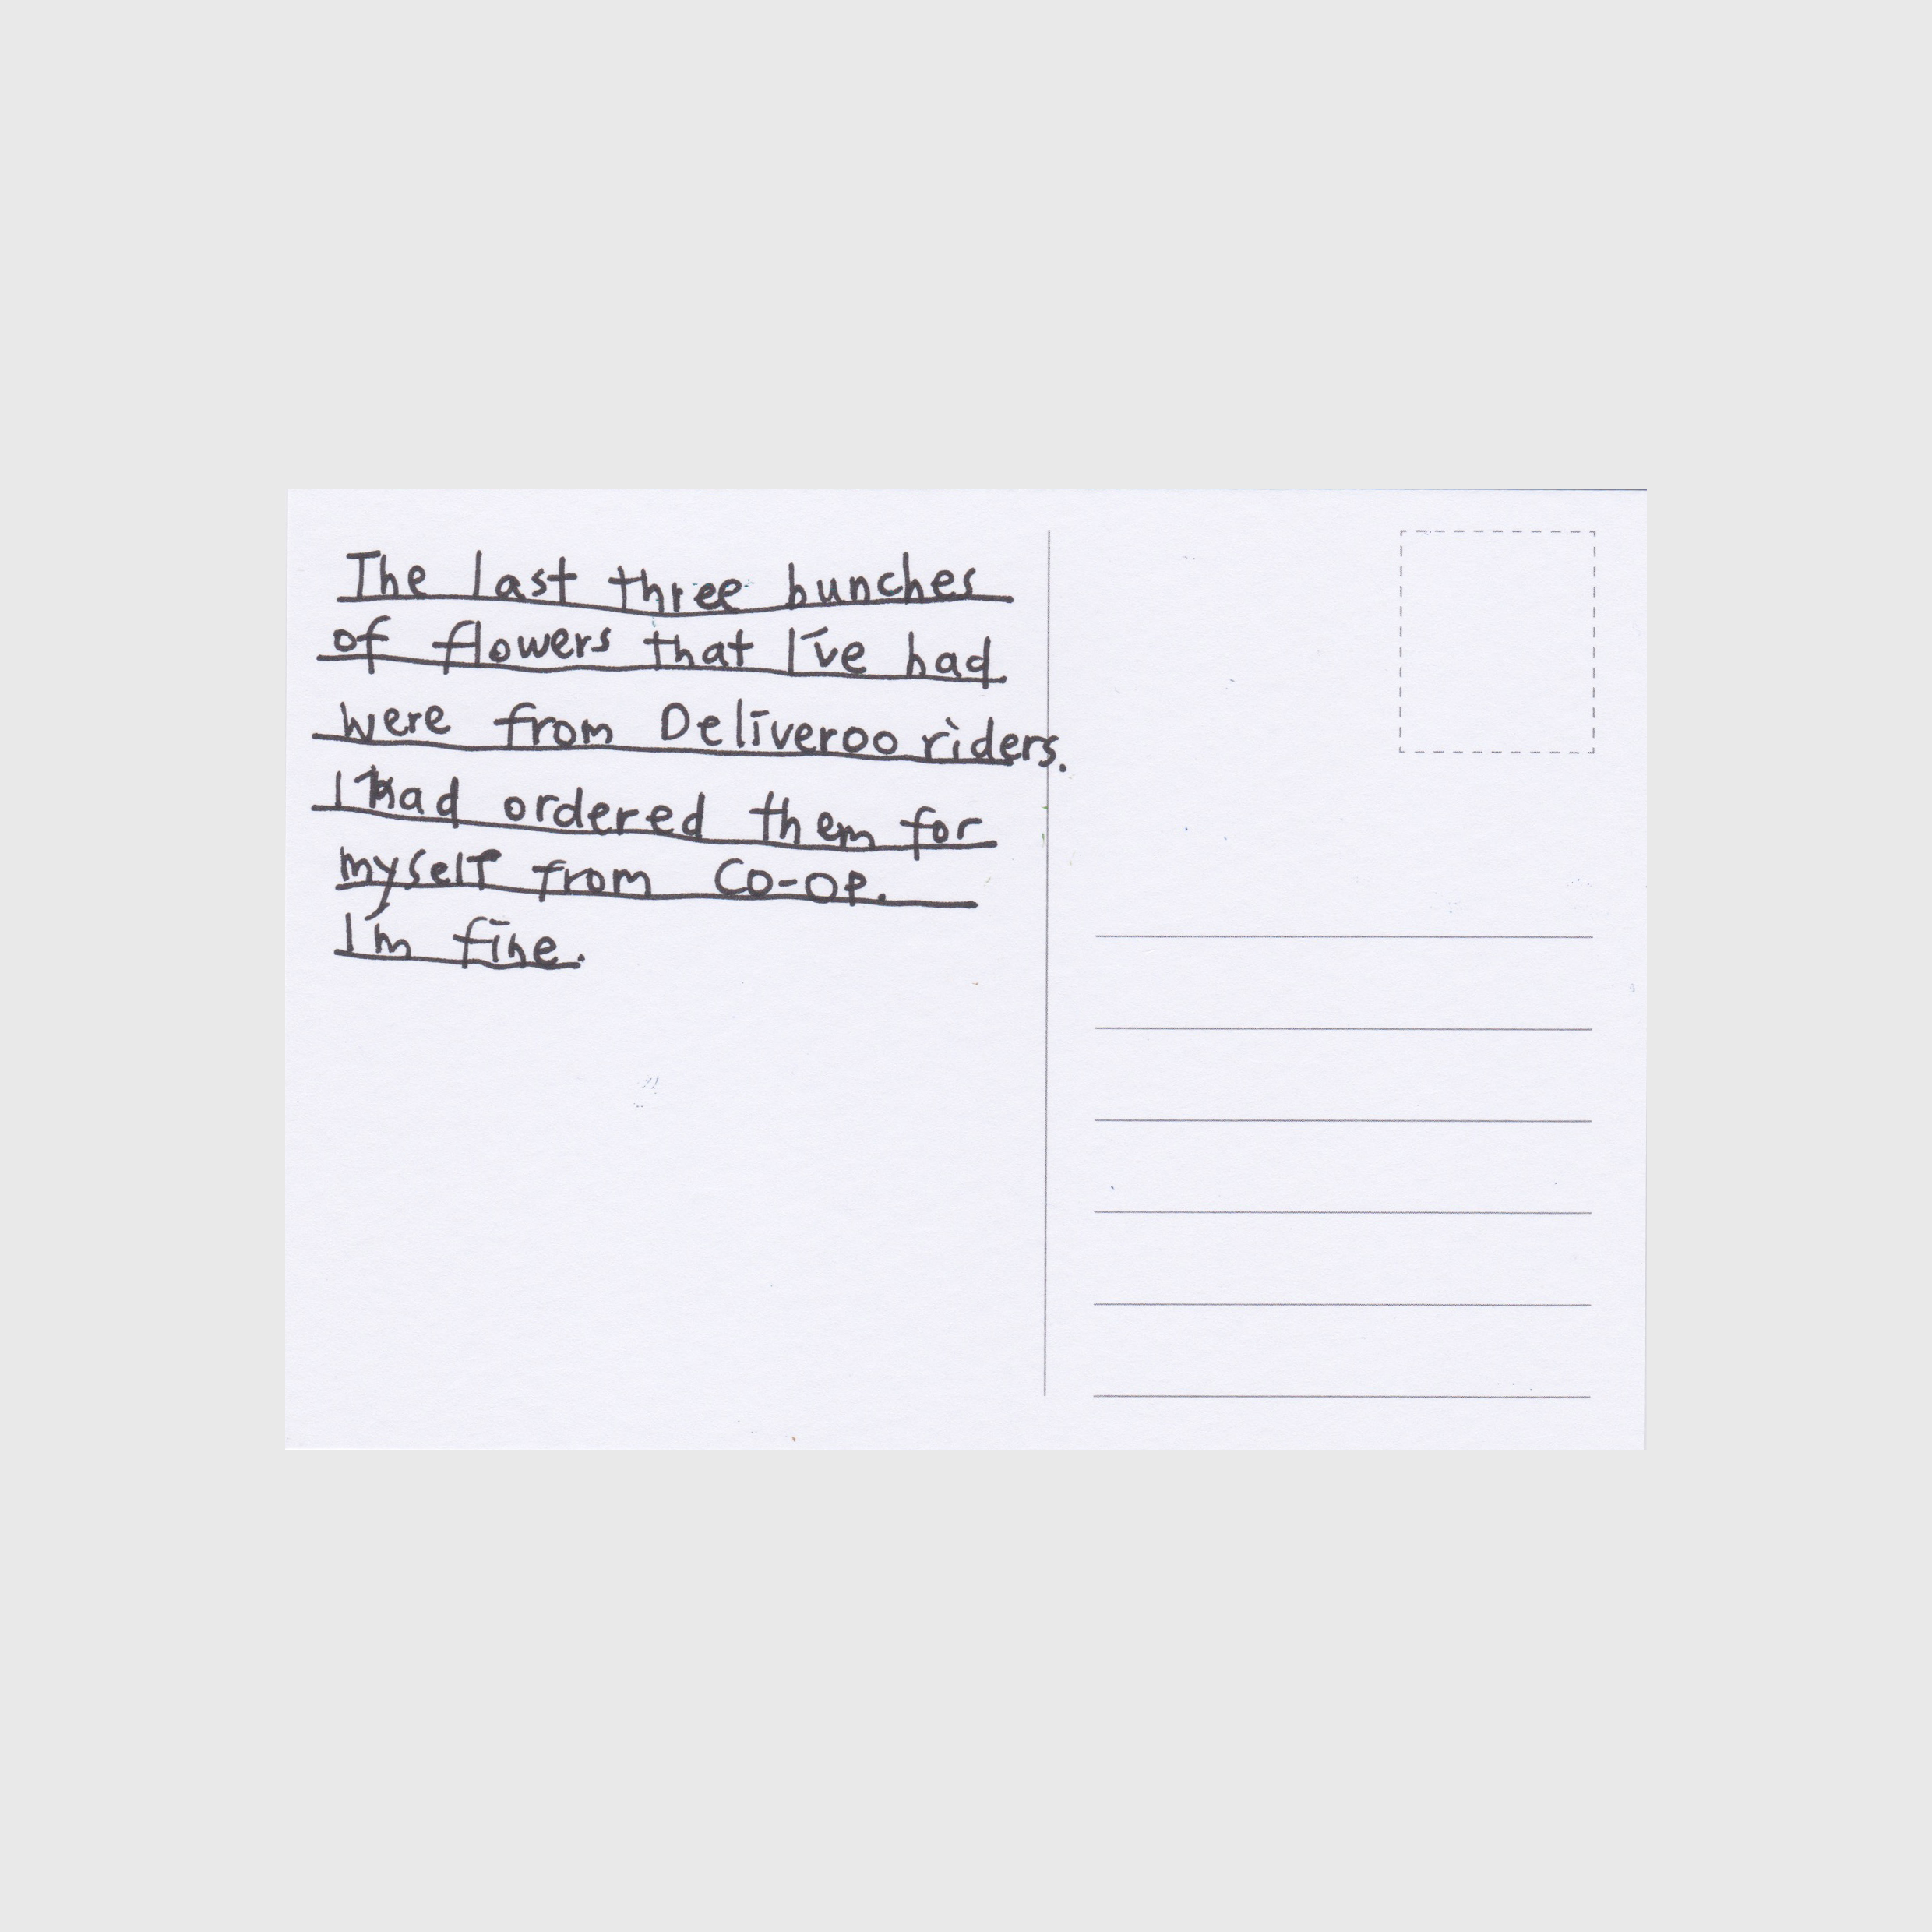 The last three bunches
of flowers that I've had
were from Deliveroo riders.
I had ordered them for
myself from Co-op.
I'm fine.